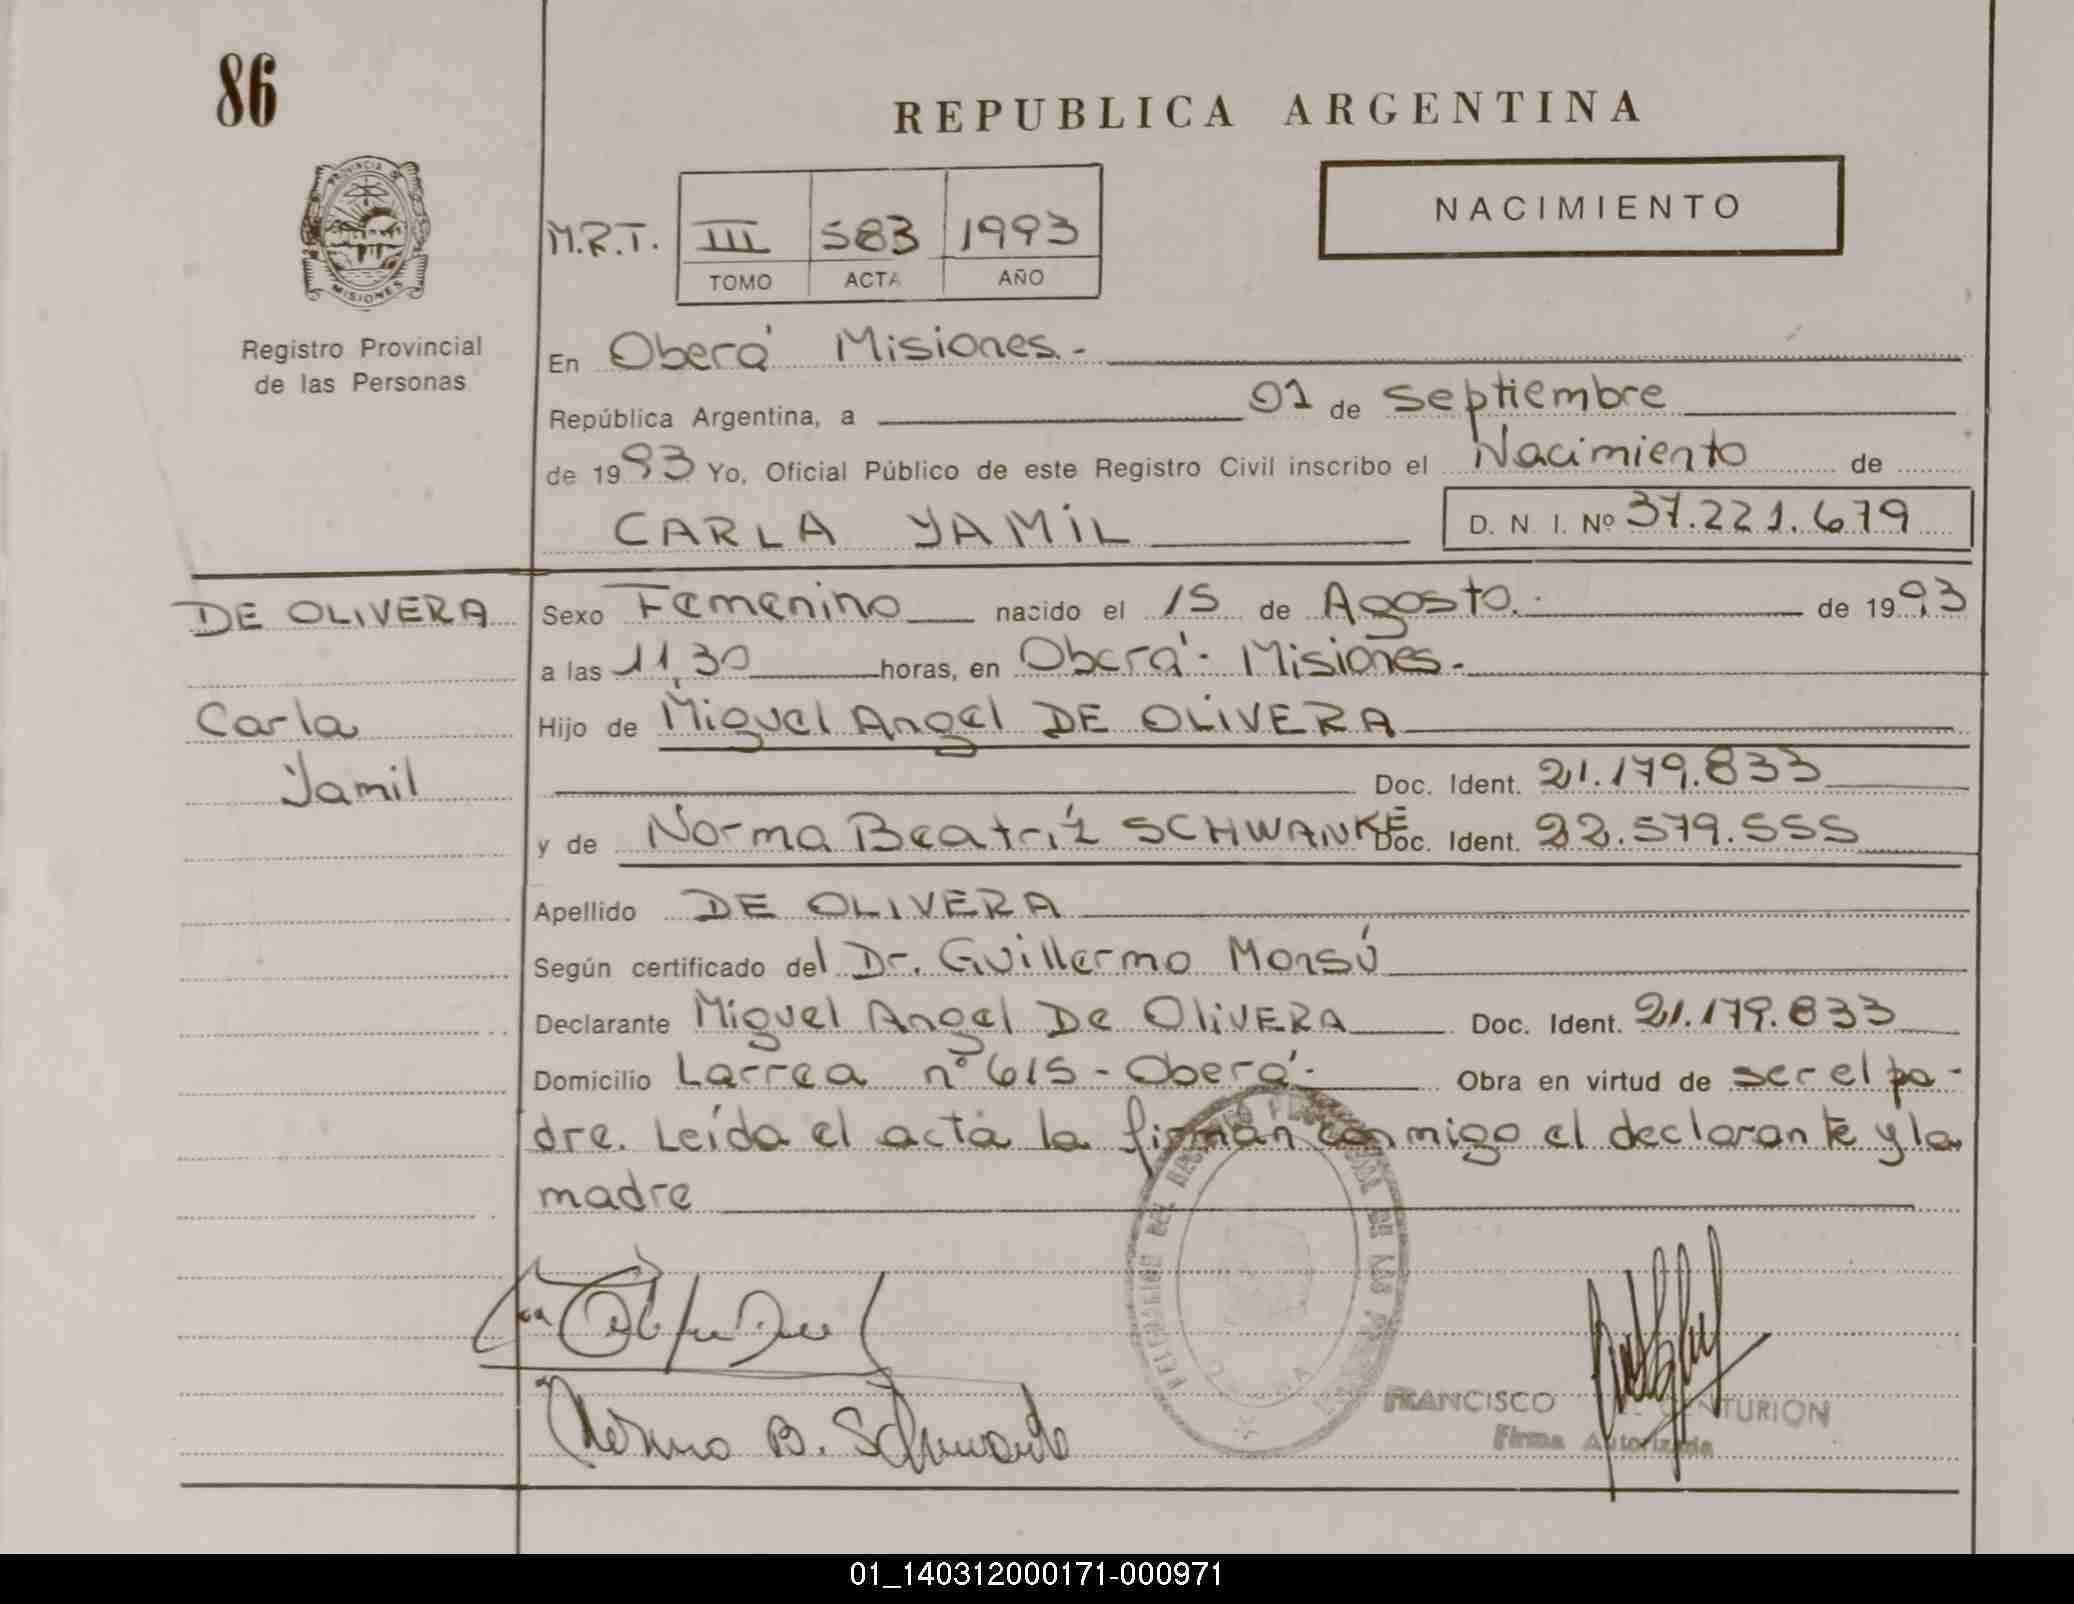 86
REPUBLICA ARGENTINA
PROVINCIA DE
MISIONES
NACIMIENTO
M.R.T. III 583 1993
TOMO ACTA AÑO
Registro Provincial
de las Personas
En Oberá Misiones.-
República Argentina, a 01 de Septiembre
de 1993 Yo, Oficial Público de este Registro Civil inscribo el Nacimiento de
CARLA YAMiL D. N. I. Nº 37.221.679
DE OLIVERA Sexo Femenino nacido el 15 de Agosto.- de 1993
a las 11,30 horas, en Oberá- Misiones.-
Carla Hijo de Miguel Angel DE OLiVERA
Yamil Doc. Ident. 21.179.833
y de Norma Beatríz SCHWANKE Doc. Ident. 22.579.555
Apellido DE OLIVERA
Según certificado del Dr. Guillermo Monsú
Declarante Miguel Angel De OliVERA Doc. Ident. 21.179.833
Domicilio Larrea nº 615 - Oberá- Obra en virtud de ser el pa-
dre. Leída el acta la firman conmigo el declarante y la
madre
Norma B. Schwanke
FRANCISCO CENTURION
Firma Autorizada
01_140312000171-000971